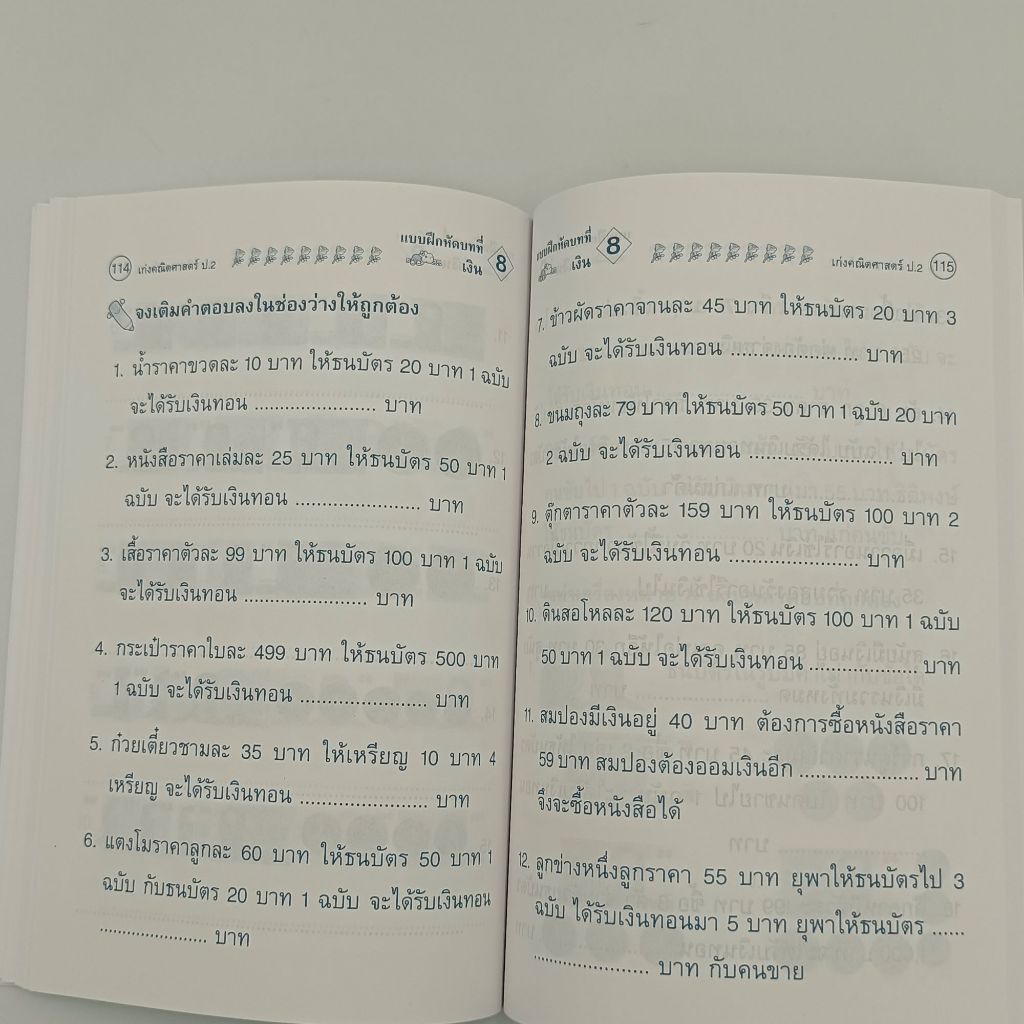 114 เก่งคณิตศาสตร์ ป.2 แบบฝึกหัดบทที่ 8
เงิน
จงเติมคำตอบลงในช่องว่างให้ถูกต้อง
1. น้ำราคาขวดละ 10 บาท ให้ธนบัตร 20 บาท 1 ฉบับ
จะได้รับเงินทอน ........................ บาท
2. หนังสือราคาเล่มละ 25 บาท ให้ธนบัตร 50 บาท 1
ฉบับ จะได้รับเงินทอน ........................ บาท
3. เสื้อราคาตัวละ 99 บาท ให้ธนบัตร 100 บาท 1 ฉบับ
จะได้รับเงินทอน ........................ บาท
4. กระเป๋าราคาใบละ 499 บาท ให้ธนบัตร 500 บาท
1 ฉบับ จะได้รับเงินทอน ........................ บาท
5. ก๋วยเตี๋ยวชามละ 35 บาท ให้เหรียญ 10 บาท 4
เหรียญ จะได้รับเงินทอน ........................ บาท
6. แตงโมราคาลูกละ 60 บาท ให้ธนบัตร 50 บาท 1
ฉบับ กับธนบัตร 20 บาท 1 ฉบับ จะได้รับเงินทอน
..................... บาท
แบบฝึกหัดบทที่ 8 เก่งคณิตศาสตร์ ป.2 115
เงิน
7. ข้าวผัดราคาจานละ 45 บาท ให้ธนบัตร 20 บาท 3
ฉบับ จะได้รับเงินทอน ........................ บาท
8. ขนมถุงละ 79 บาท ให้ธนบัตร 50 บาท 1 ฉบับ 20 บาท
2 ฉบับ จะได้รับเงินทอน ........................ บาท
9. ตุ๊กตาราคาตัวละ 159 บาท ให้ธนบัตร 100 บาท 2
ฉบับ จะได้รับเงินทอน ........................ บาท
10. ดินสอโหลละ 120 บาท ให้ธนบัตร 100 บาท 1 ฉบับ
50 บาท 1 ฉบับ จะได้รับเงินทอน ........................ บาท
11. สมปองมีเงินอยู่ 40 บาท ต้องการซื้อหนังสือราคา
59 บาท สมปองต้องออมเงินอีก ........................ บาท
จึงจะซื้อหนังสือได้
12. ลูกข่างหนึ่งลูกราคา 55 บาท ยุพาให้ธนบัตรไป 3
ฉบับ ได้รับเงินทอนมา 5 บาท ยุพาให้ธนบัตร ......
....................... บาท กับคนขาย